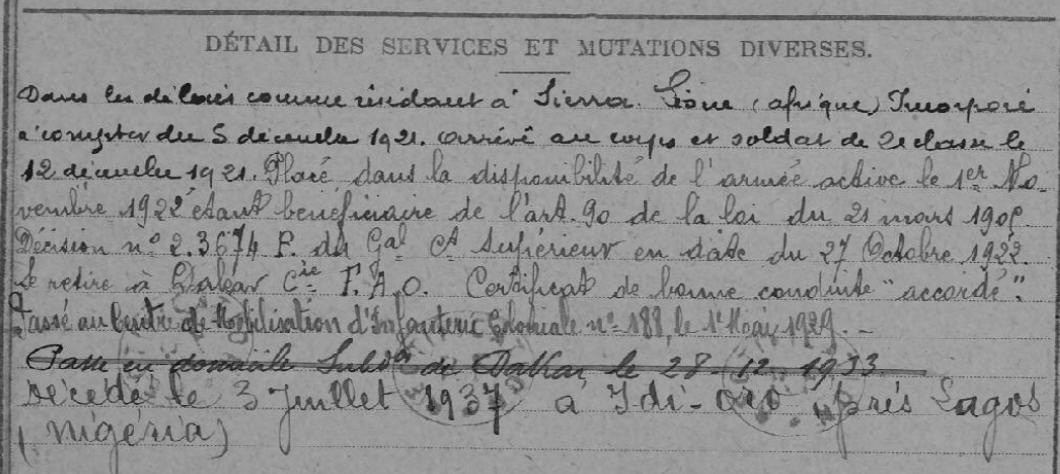 DÉTAIL DES SERVICES ET MUTATIONS DIVERSES.
Dans les délais comme résidant à Sierra Léone (afrique) Incorporé
à compter du 5 décembre 1921. arrivé au corps et soldat de 2e classe le
12 décembre 1921. Placé dans la disponibilité de l'armée active le 1er No-
vembre 1922 étant bénéficiaire de l'art. 90 de la loi du 21 mars 1905
Décision n° 2.3674 P. du Gal Ct Supérieur en date du 27 Octobre 1922.
Se retire à Dakar Cie F.A.O. Certificat de bonne conduite "accordé".
Passé au Centre de Mobilisation d'Infanterie Coloniale n° 188, le 1er Mai 1929.
Passe en domicile Subdon de Dakar, le 28-12-1933
Décédé le 3 Juillet 1937 à Idi-Oro près Lagos
(Nigéria)